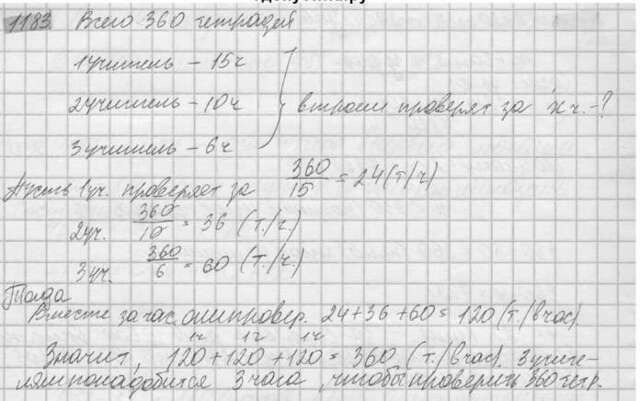 1183. Всего 360 тетрадей
1 учитель - 15 ч
2 учитель - 10 ч
втроем проверят за x ч. - ?
3 учитель - 6 ч
Пусть 1 уч. проверяет за 360/15 = 24 (т/ч)
2 уч. 360/10 = 36 (т./ч.)
3 уч. 360/6 = 60 (т./ч.)
Тогда
Вместе за час они провер. 24 + 36 + 60 = 120 (т./в час).
1ч 1ч 1ч
Значит, 120 + 120 + 120 = 360 (т./в час). 3 учите-
лям понадобится 3 часа, чтобы проверить 360 тетр.